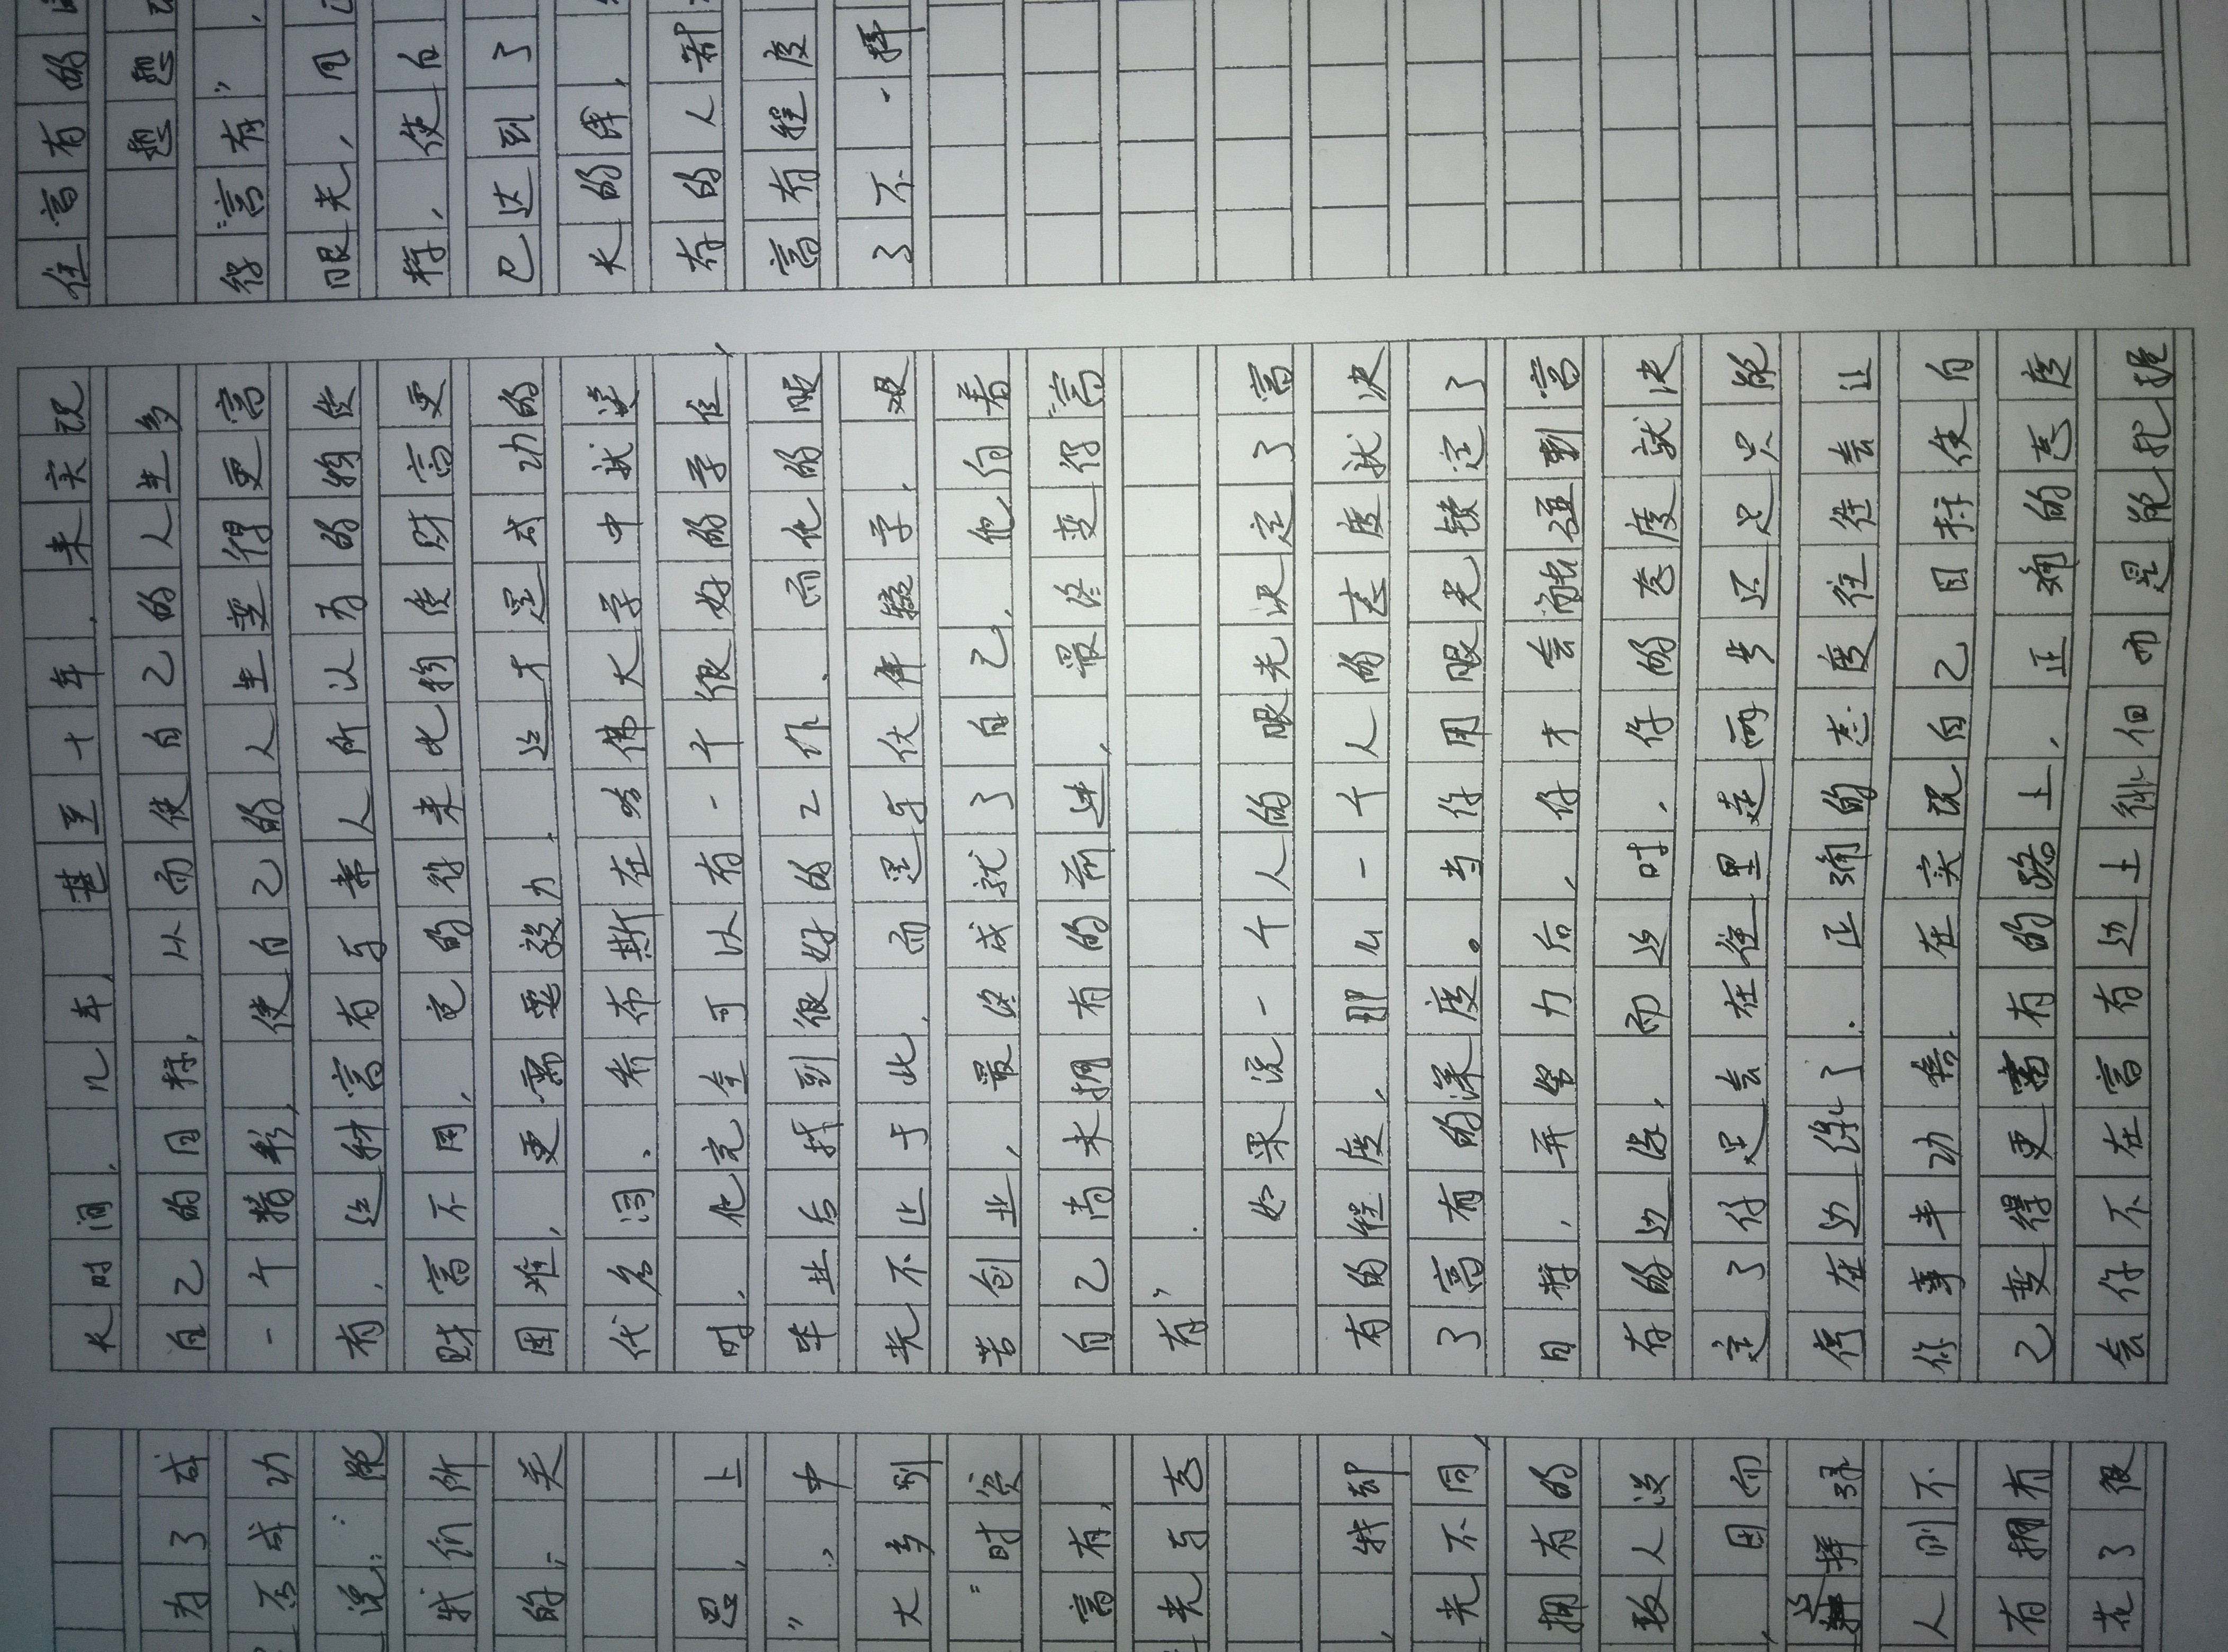 为了成
否成功
说:"能
我们所
的"关
思,上
",中
大多
"时资
富有,
光与态
,我却
光不同,
拥有的
致人没
,因而
人则不
有拥有
花了很
长时间,几年,甚至十年,来实现
自己的目标,从而使自己的人生多
一个精彩,使自己的人生变得更富
有,这财富有与常人所以为的物使
财富不同,它的得来比物使财富更
困难,更需要毅力.这才是成功的
代名词、乔布斯在哈佛大学中就读
时,他完全可以有一个很好的学位,
毕业后找到很好的工作、而他的眼
光不止于此,而是与伙伴辍学,艰
苦创业,最终成就了自己,他向着
自己尚未拥有的前进,最终变得"富
有".
如果说一个人的眼光决定了富
有的程度,那么一个人的态度就决
了富有的深度。当你用眼光锁定了
目标,并努力后,你才会触碰到富
有的边缘,而这时,你的态度就决
定了你是会在往里走两步还是只能
停在边缘了.正确的态度往往会让
你事半功倍,在实现自己目标使自
己变得更富有的路上,正确的态度
会你不在富有边上徘徊而是能把握
住富有的
得"富有",
眼光,用
标,使自
已达到了
长的
有的人都
富有程度
了不一样